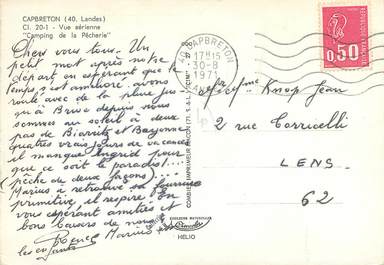 CAPBRETON (40. Landes)
Cl. 20-1 - Vue aérienne
"Camping de la Pêcherie"
Chers vous tous. Un
petit mot après notre
départ en espérant que le
temps s'est amélioré. avons
route avec de la pluie jus-
qu'à Brive depuis nous
sommes au soleil à deux
pas de Biarritz et Bayonne
quatre vrais jours de vacances
il manque Ingrid pour
que ce soit le paradis!...
(pêche de deux façons)...
Marius a retrouvé sa
primitive, il respire. En
vous espérant amitiés et
bons baisers de nous
Marius
les enfants
COMBIER IMPRIMEUR MACON
CAPBRETON
17H15
30-8
1971
0,50
Mr et Mme Knop Jean
2 rue Corricelli
LENS
62
COULEURS NATURELLES
HELIO